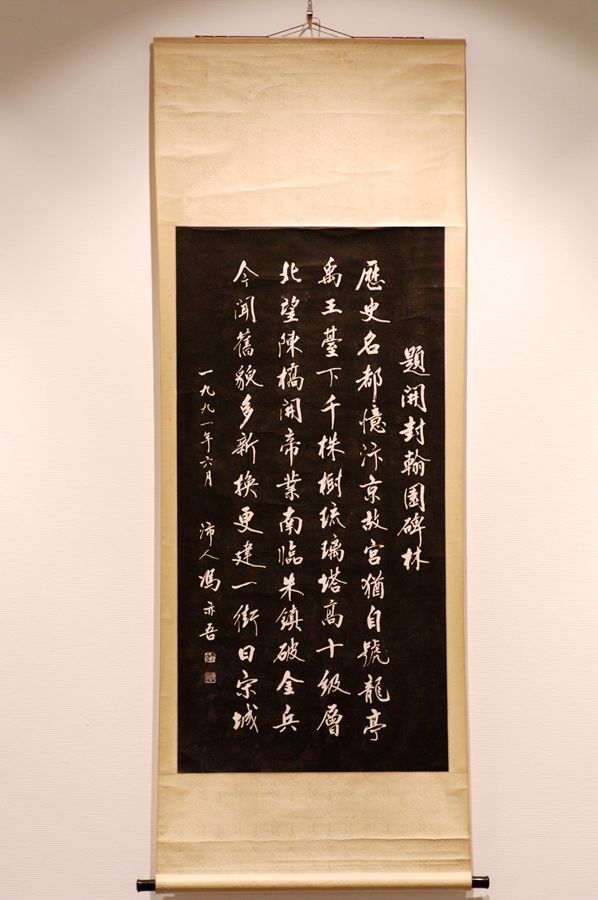 題開封翰園碑林
歷史名都憶汴京故宮猶自號龍亭
禹王臺下千株樹琉璃塔高十級層
北望陳橋開帝業南臨朱鎮破金兵
今聞舊貌多新換更建一街曰宗城
一九九一年六月 沛人馮亦吾